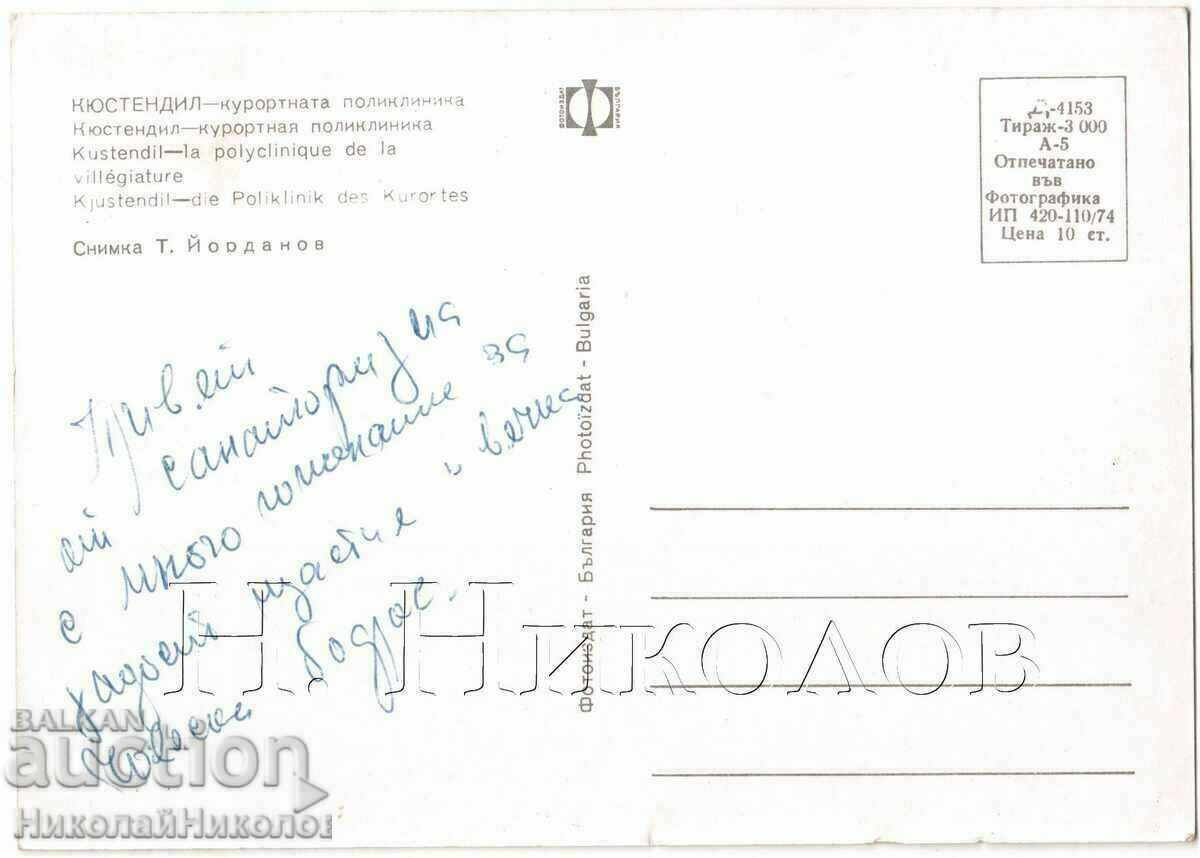 КЮСТЕНДИЛ—курортната поликлиника
Кюстендил—курортная поликлиника
Kustendil—la polyclinique de la
villégiature
Kjustendil—die Poliklinik des Kurortes
Снимка Т. Йорданов
ФОТОИЗДАТ
БЪЛГАРИЯ
Д-4153
Тираж-3 000
А-5
Отпечатано
във
Фотографика
ИП 420-110/74
Цена 10 ст.
Фотоиздат - България Photoïzdat - Bulgaria
Привет
от
с много пожелание за
щастие и вечна
бодрос.
Н. НИКОЛОВ
BALKAN
auction
НиколайНиколов